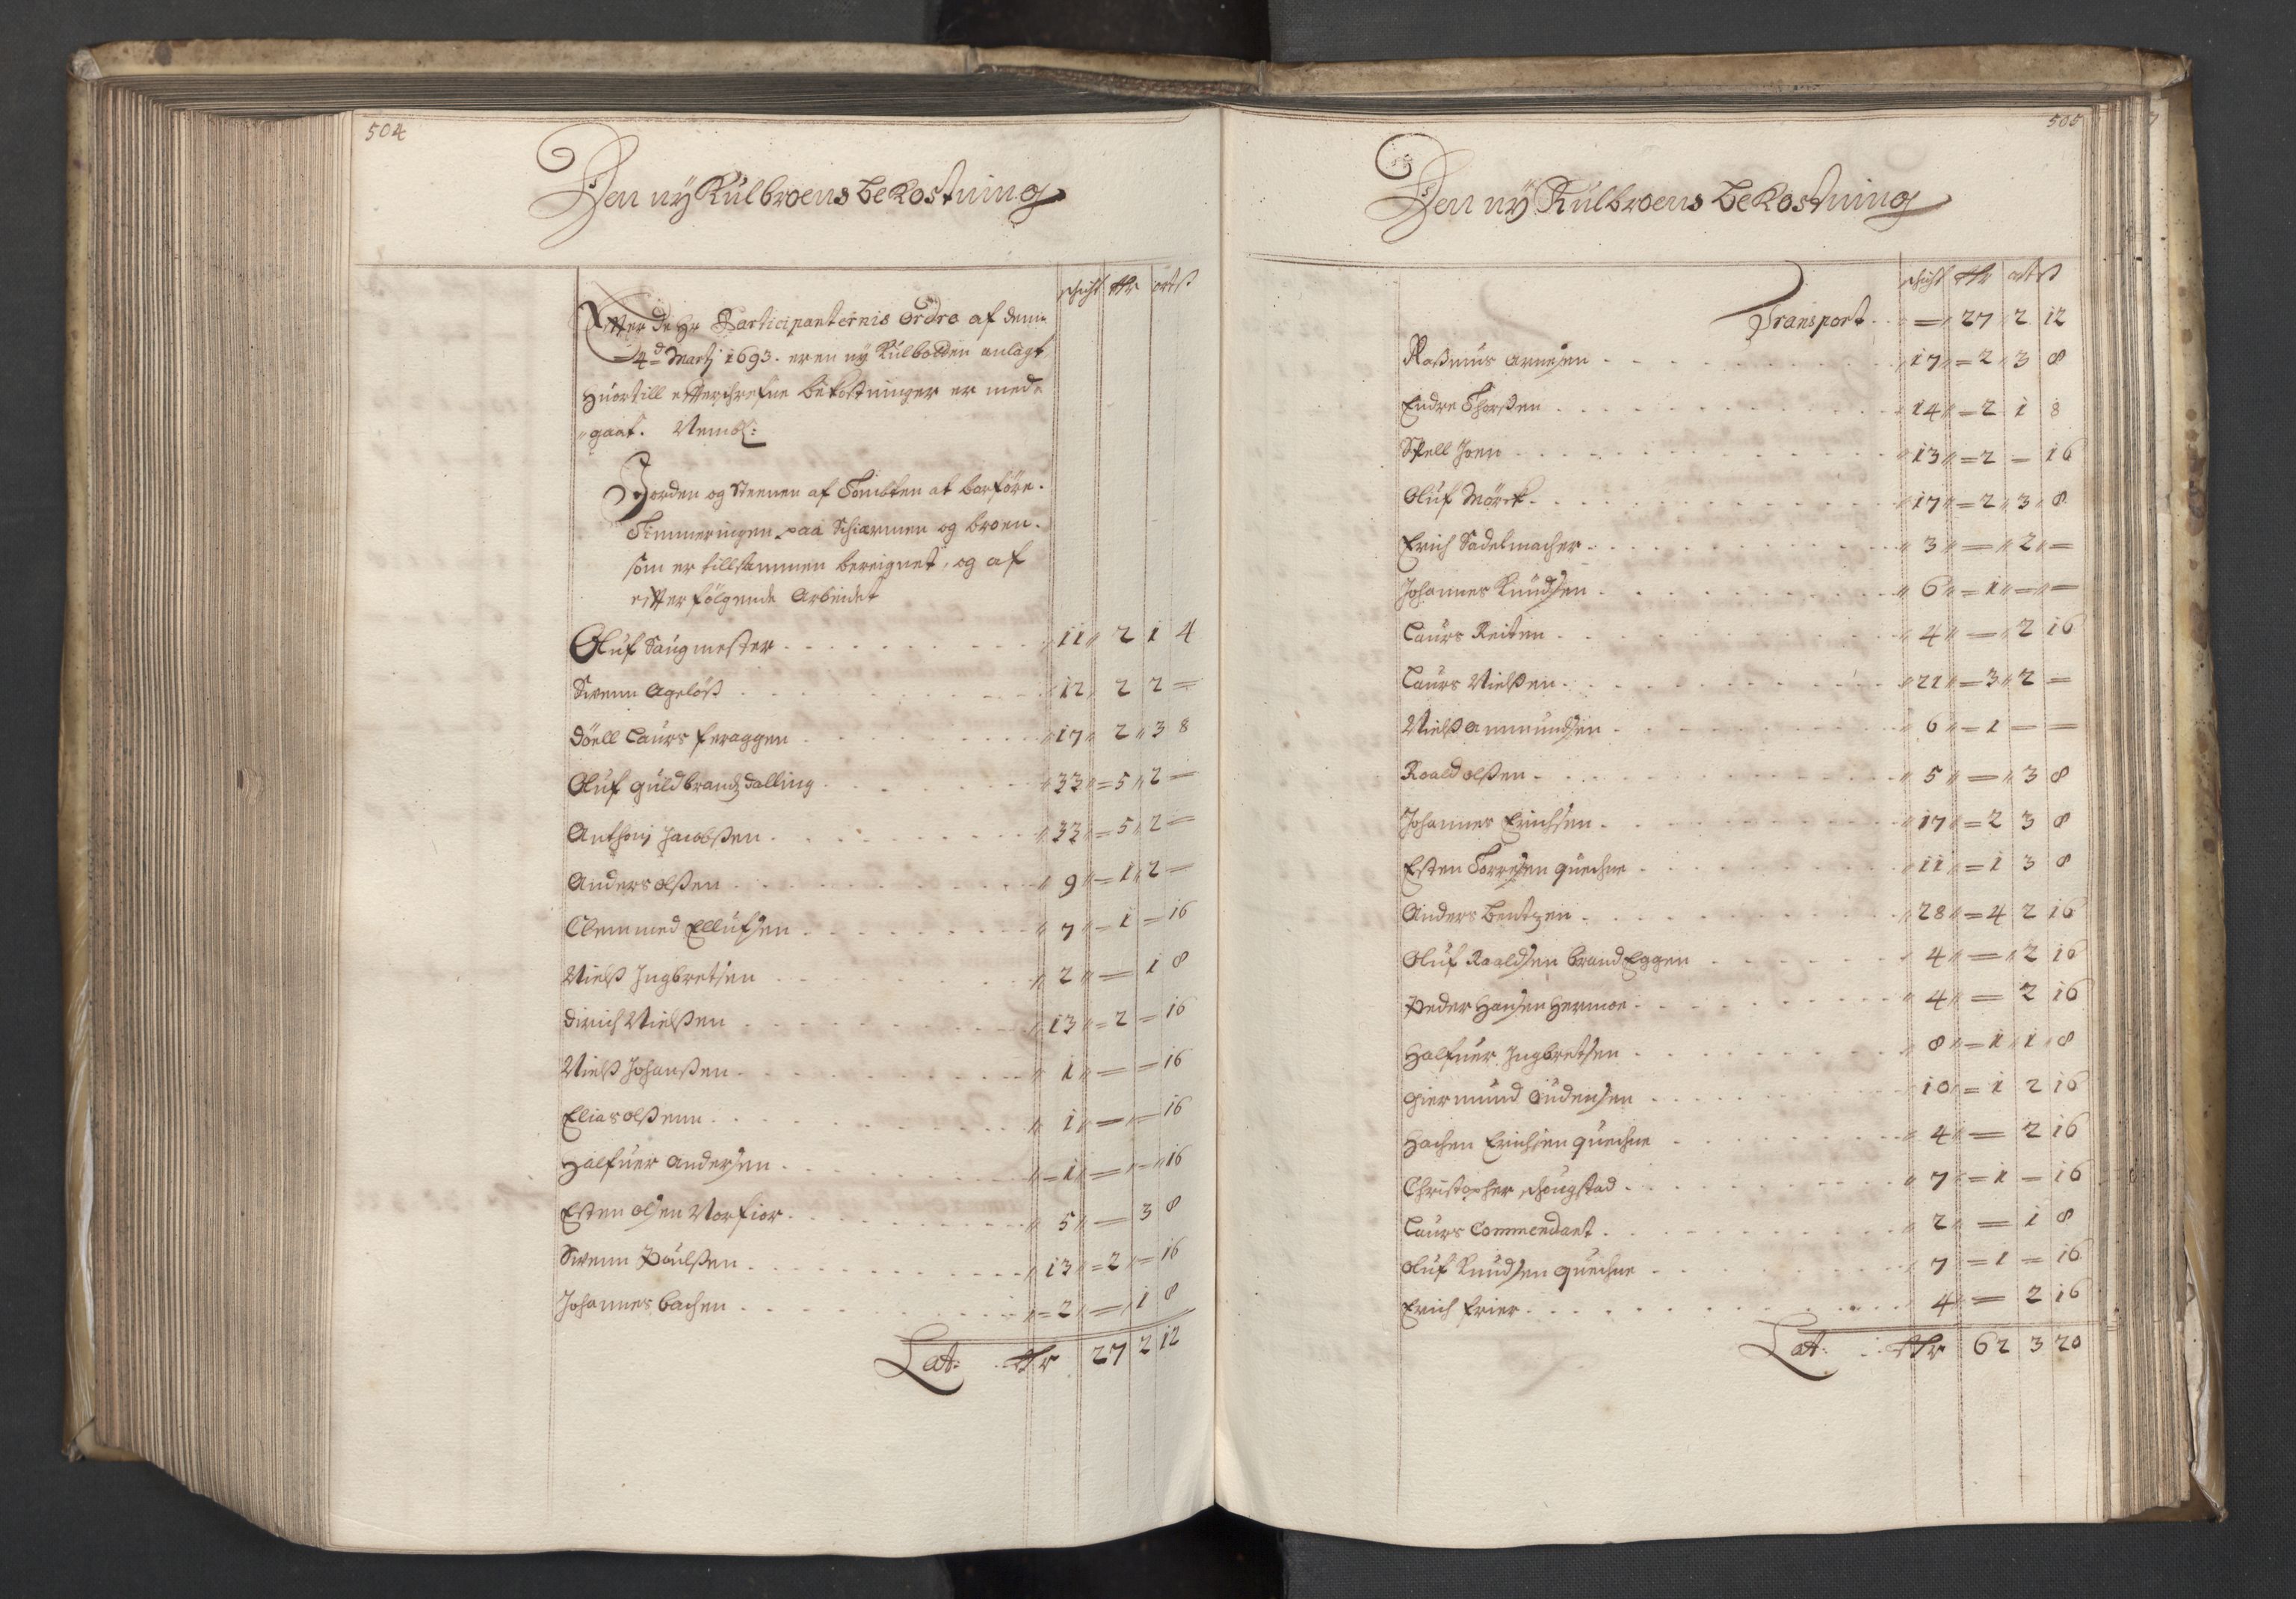 504
Den nÿ Kulbroens bekostning
schicht Rdr ort ß
Efter De Hr Participanternis Ordre af denn
4de Martj 1693. er en nÿ Kulbolden anlagt
Huortill efterschrefne bekostninger er med
gaat. Neml:
Jorden og Steenen af Tombten at bortføre.
Timmeringen paa Schiærmen og broen.
som er tillsammen bereignet, og af
efterfølgende Arbeidet
Oluf Saugmester 11 2 1 4
Swenn Ageløst 12 2 2 =
Døell Laurs feraggen 17 2 3 8
Oluf Guldbrandzdalling 33 = 5 2 =
Anthonj Jacobßen 33 = 5 2 =
Anders olßen 9 = 1 2 =
Clemmed Ellufsen 7 = 1 = 16
Nielß Ingbretsen 2 = 1 8
Dirich Nielßen 13 = 2 = 16
Nielß Johanßen 1 = = 16
Elias olßenn 1 = = 16
Halfuer Andersen = 1 = = 16
Esten olsen Norfior 5 = 3 8
Swenn Poulßen 13 = 2 = 16
Johannes bachen = 2 = 1 8
Lat: Rdr 27 2 12
505
Den nÿ Kulbroens bekostning
schicht Rdr ort ß
Transport = 27 2 12
Raßmus Arnesen 17 = 2 3 8
Endre Thorßen 14 = 2 1 8
Spell Joen 13 = 2 = 16
Oluf Mørch 17 = 2 3 8
Erich Sadelmacher 3 = 2 =
Johannes Knudsen 6 = 1 = =
Laurs Reiten 4 = 2 16
Laurs Nielßen 21 = 3 2 =
Nielß Ammundsen 6 = 1 = =
Roald olßen 5 = 3 8
Johannes Erichsen 17 = 2 3 8
Esten Torresen quechne 11 = 1 3 8
Anders Bentzen 28 = 4 2 16
Oluf Raaldsen brand Eggen 4 = 2 16
Peder Hansen Hermoe 4 = 2 16
Halfuer Ingbretsen 8 = 1 1 8
Giermund Oudensen 10 = 1 2 16
Hachen Erichsen quechne 4 = 2 16
Christopher schougstad 7 = 1 = 16
Laurs Commendant 2 = 1 8
Oluf Knudsen quechne 7 = 1 = 16
Erich frier 4 = 2 16
Lat: Rdr 62 3 20